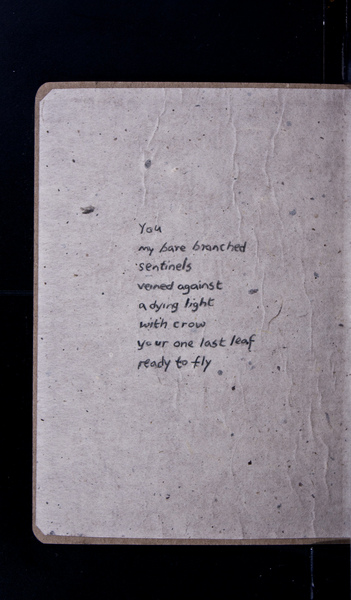 You
my bare branched
sentinels
veined against
a dying light
with crow
your one last leaf
ready to fly